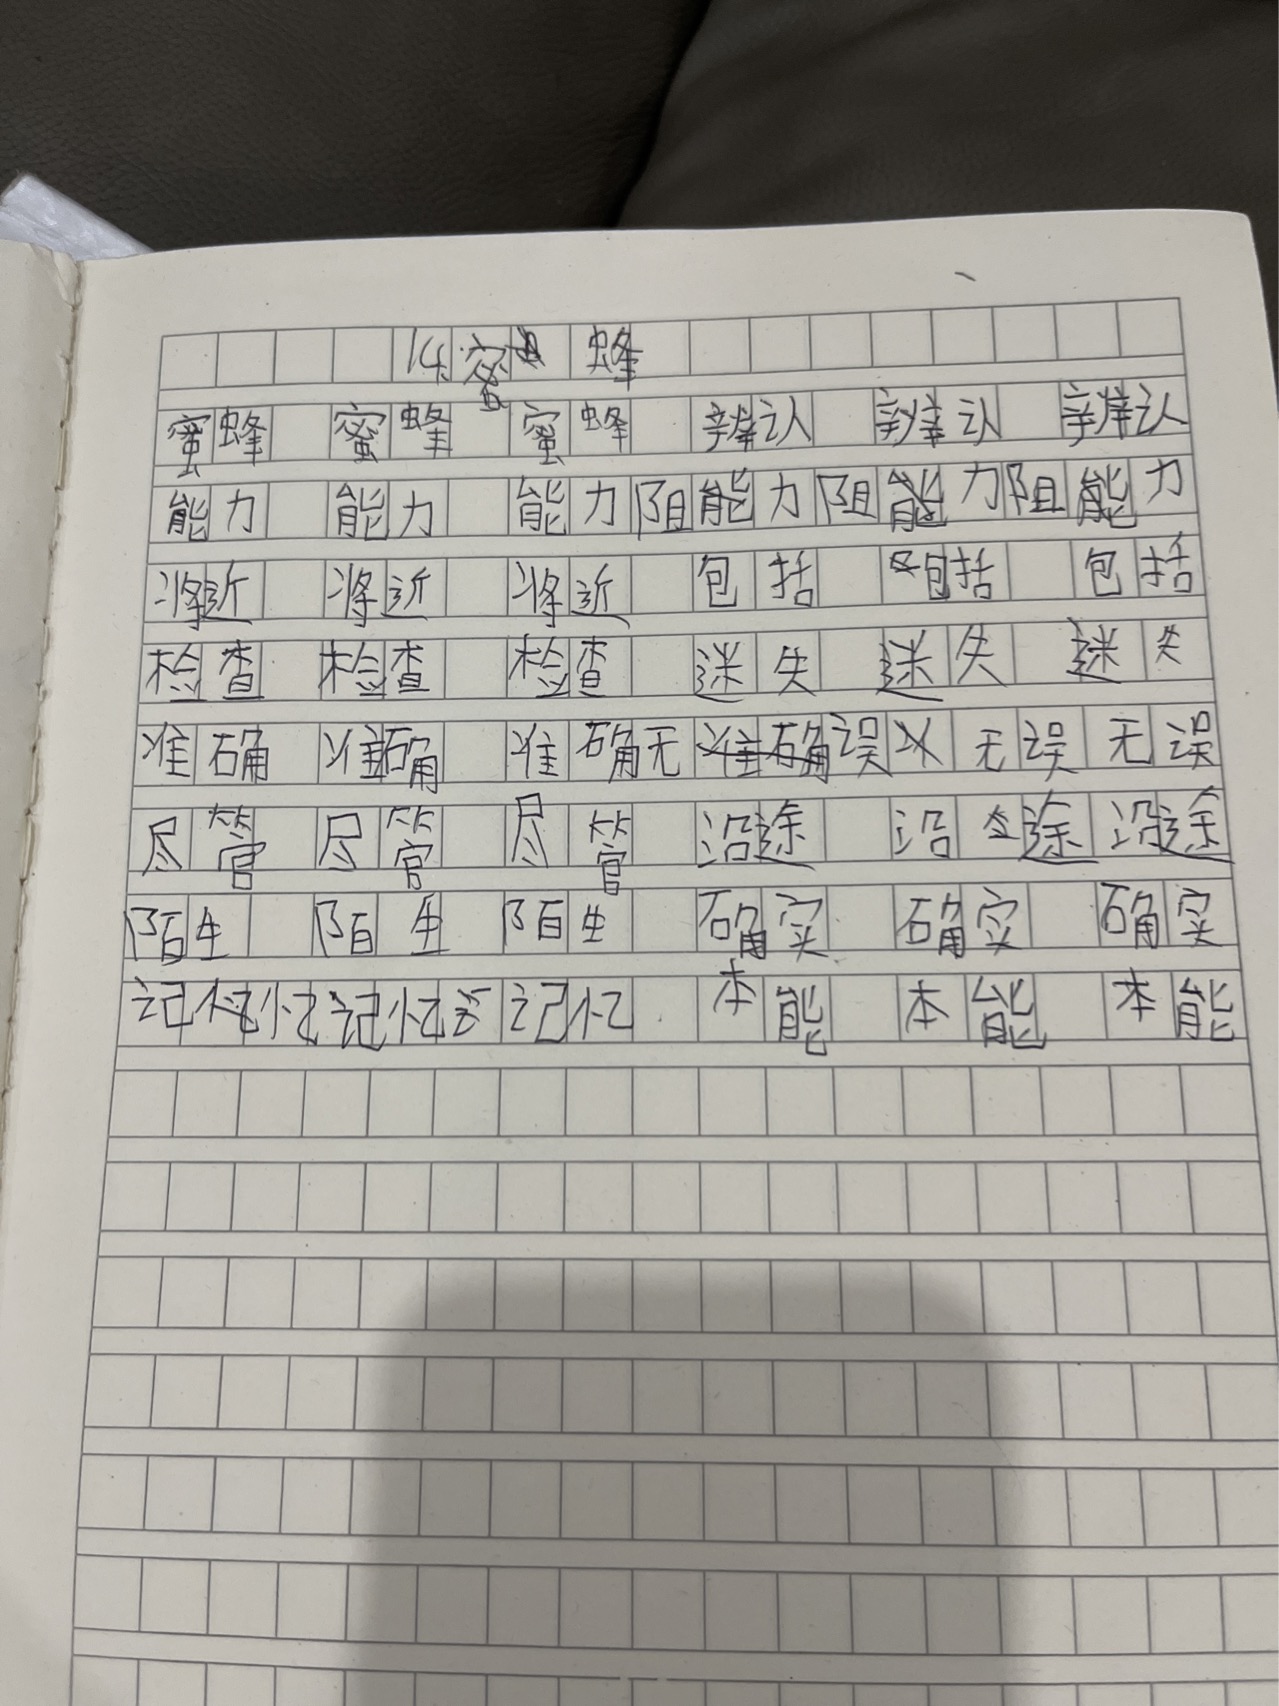 14 蜜 蜂
蜜蜂 蜜蜂 蜜蜂 辨认 辨认 辨认
能力 能力 能力 阻能力 阻能力 阻能力
将近 将近 将近 包括 包括 包括
检查 检查 检查 迷失 迷失 迷失
准确 准确 准确无误 无误 无误
尽管 尽管 尽管 沿途 沿途 沿途
陌生 陌生 陌生 确实 确实 确实
记忆 记忆 记忆 本能 本能 本能